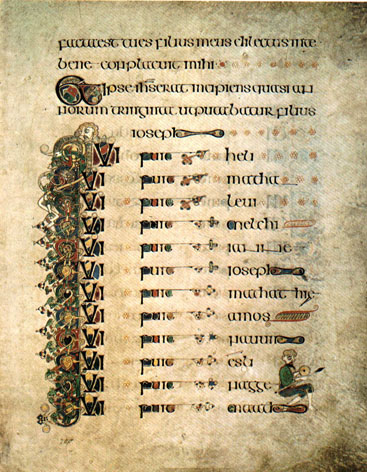 facta est tu es filius meus dilectus in te
bene conplacuit mihi
Et ipse ihs erat incipiens quasi an
norum triginta ut putabatur filius
ioseph
QUI fuit heli
QUI fuit matha
QUI fuit leui
QUI fuit melchi
QUI fuit
QUI fuit ioseph
QUI fuit mathathie
QUI fuit amos
QUI fuit nauum
QUI fuit esli
QUI fuit nagge
QUI fuit maath